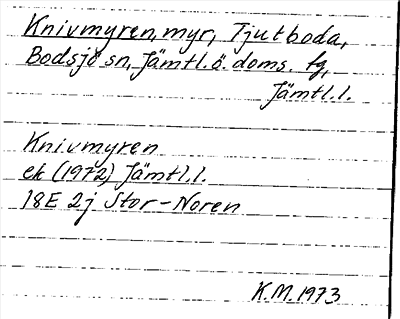 Knivmyren, myr, Tjutboda,
Bodsjö sn, Jämtl. ö. doms. tg,
Jämtl. l.
Knivmyren
ek (1972) Jämtl. l.
18E 2j Stor-Noren
K.M. 1973